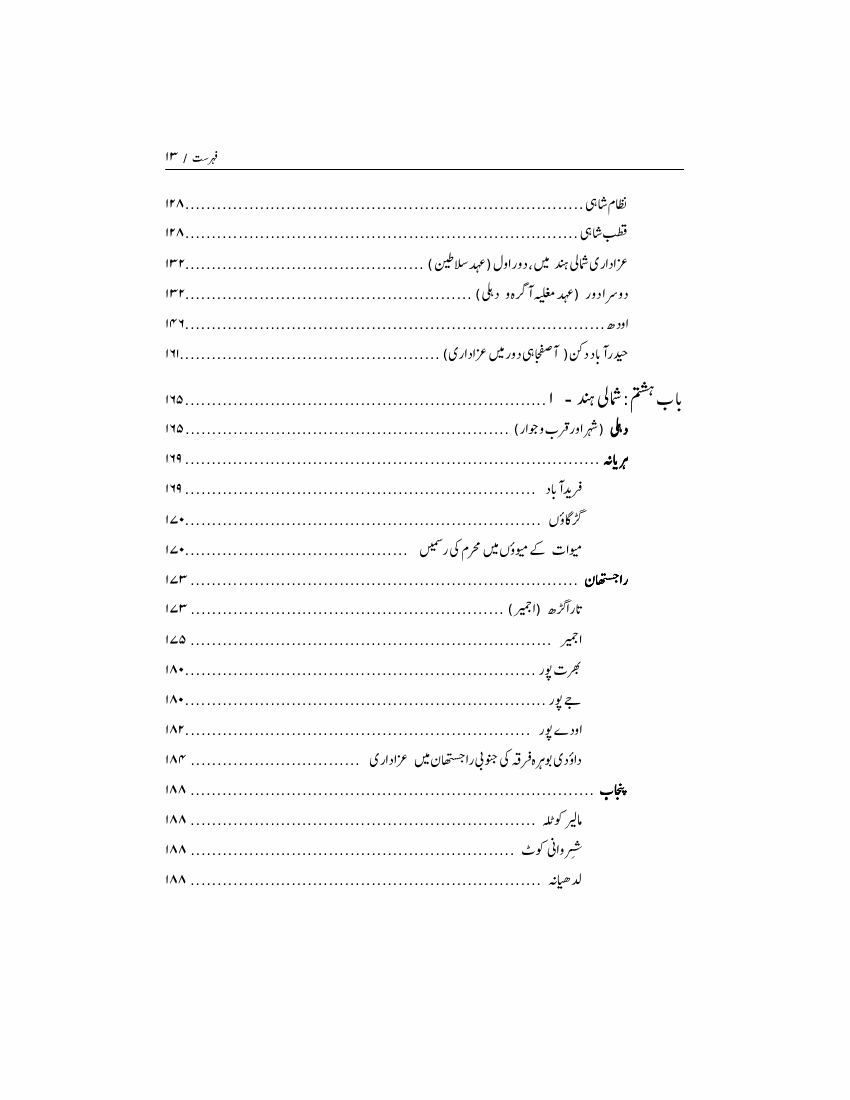 فہرست / ۱۳
نظام شاہی ........................................................................... ۱۲۸
قطب شاہی .......................................................................... ۱۲۸
عزاداری شمالی ہند میں، دور اول (عہد سلاطین) ............................................. ۱۳۲
دوسرا دور (عہد مغلیہ آگرہ و دہلی) ...................................................... ۱۳۲
اودھ ............................................................................... ۱۴۶
حیدرآباد دکن (آصفجاہی دور میں عزاداری) ................................................. ۱۶۱
باب ہشتم : شمالی ہند - ۱ .................................................................... ۱۶۵
دہلی (شہر اور قرب و جوار) ............................................................. ۱۶۵
ہریانہ .............................................................................. ۱۶۹
فریدآباد .................................................................. ۱۶۹
گڑگاؤں ................................................................... ۱۷۰
میوات کے میوؤں میں محرم کی رسمیں .......................................... ۱۷۰
راجستھان ......................................................................... ۱۷۳
تاراگڑھ (اجمیر) ........................................................... ۱۷۳
اجمیر .................................................................... ۱۷۵
بھرت پور .................................................................. ۱۸۰
جے پور .................................................................... ۱۸۰
اودے پور ................................................................. ۱۸۲
داؤدی بوہرہ فرقہ کی جنوبی راجستھان میں عزاداری ................................ ۱۸۴
پنجاب ............................................................................ ۱۸۸
مالیر کوٹلہ ................................................................. ۱۸۸
شِروانی کوٹ ............................................................. ۱۸۸
لدھیانہ .................................................................. ۱۸۸